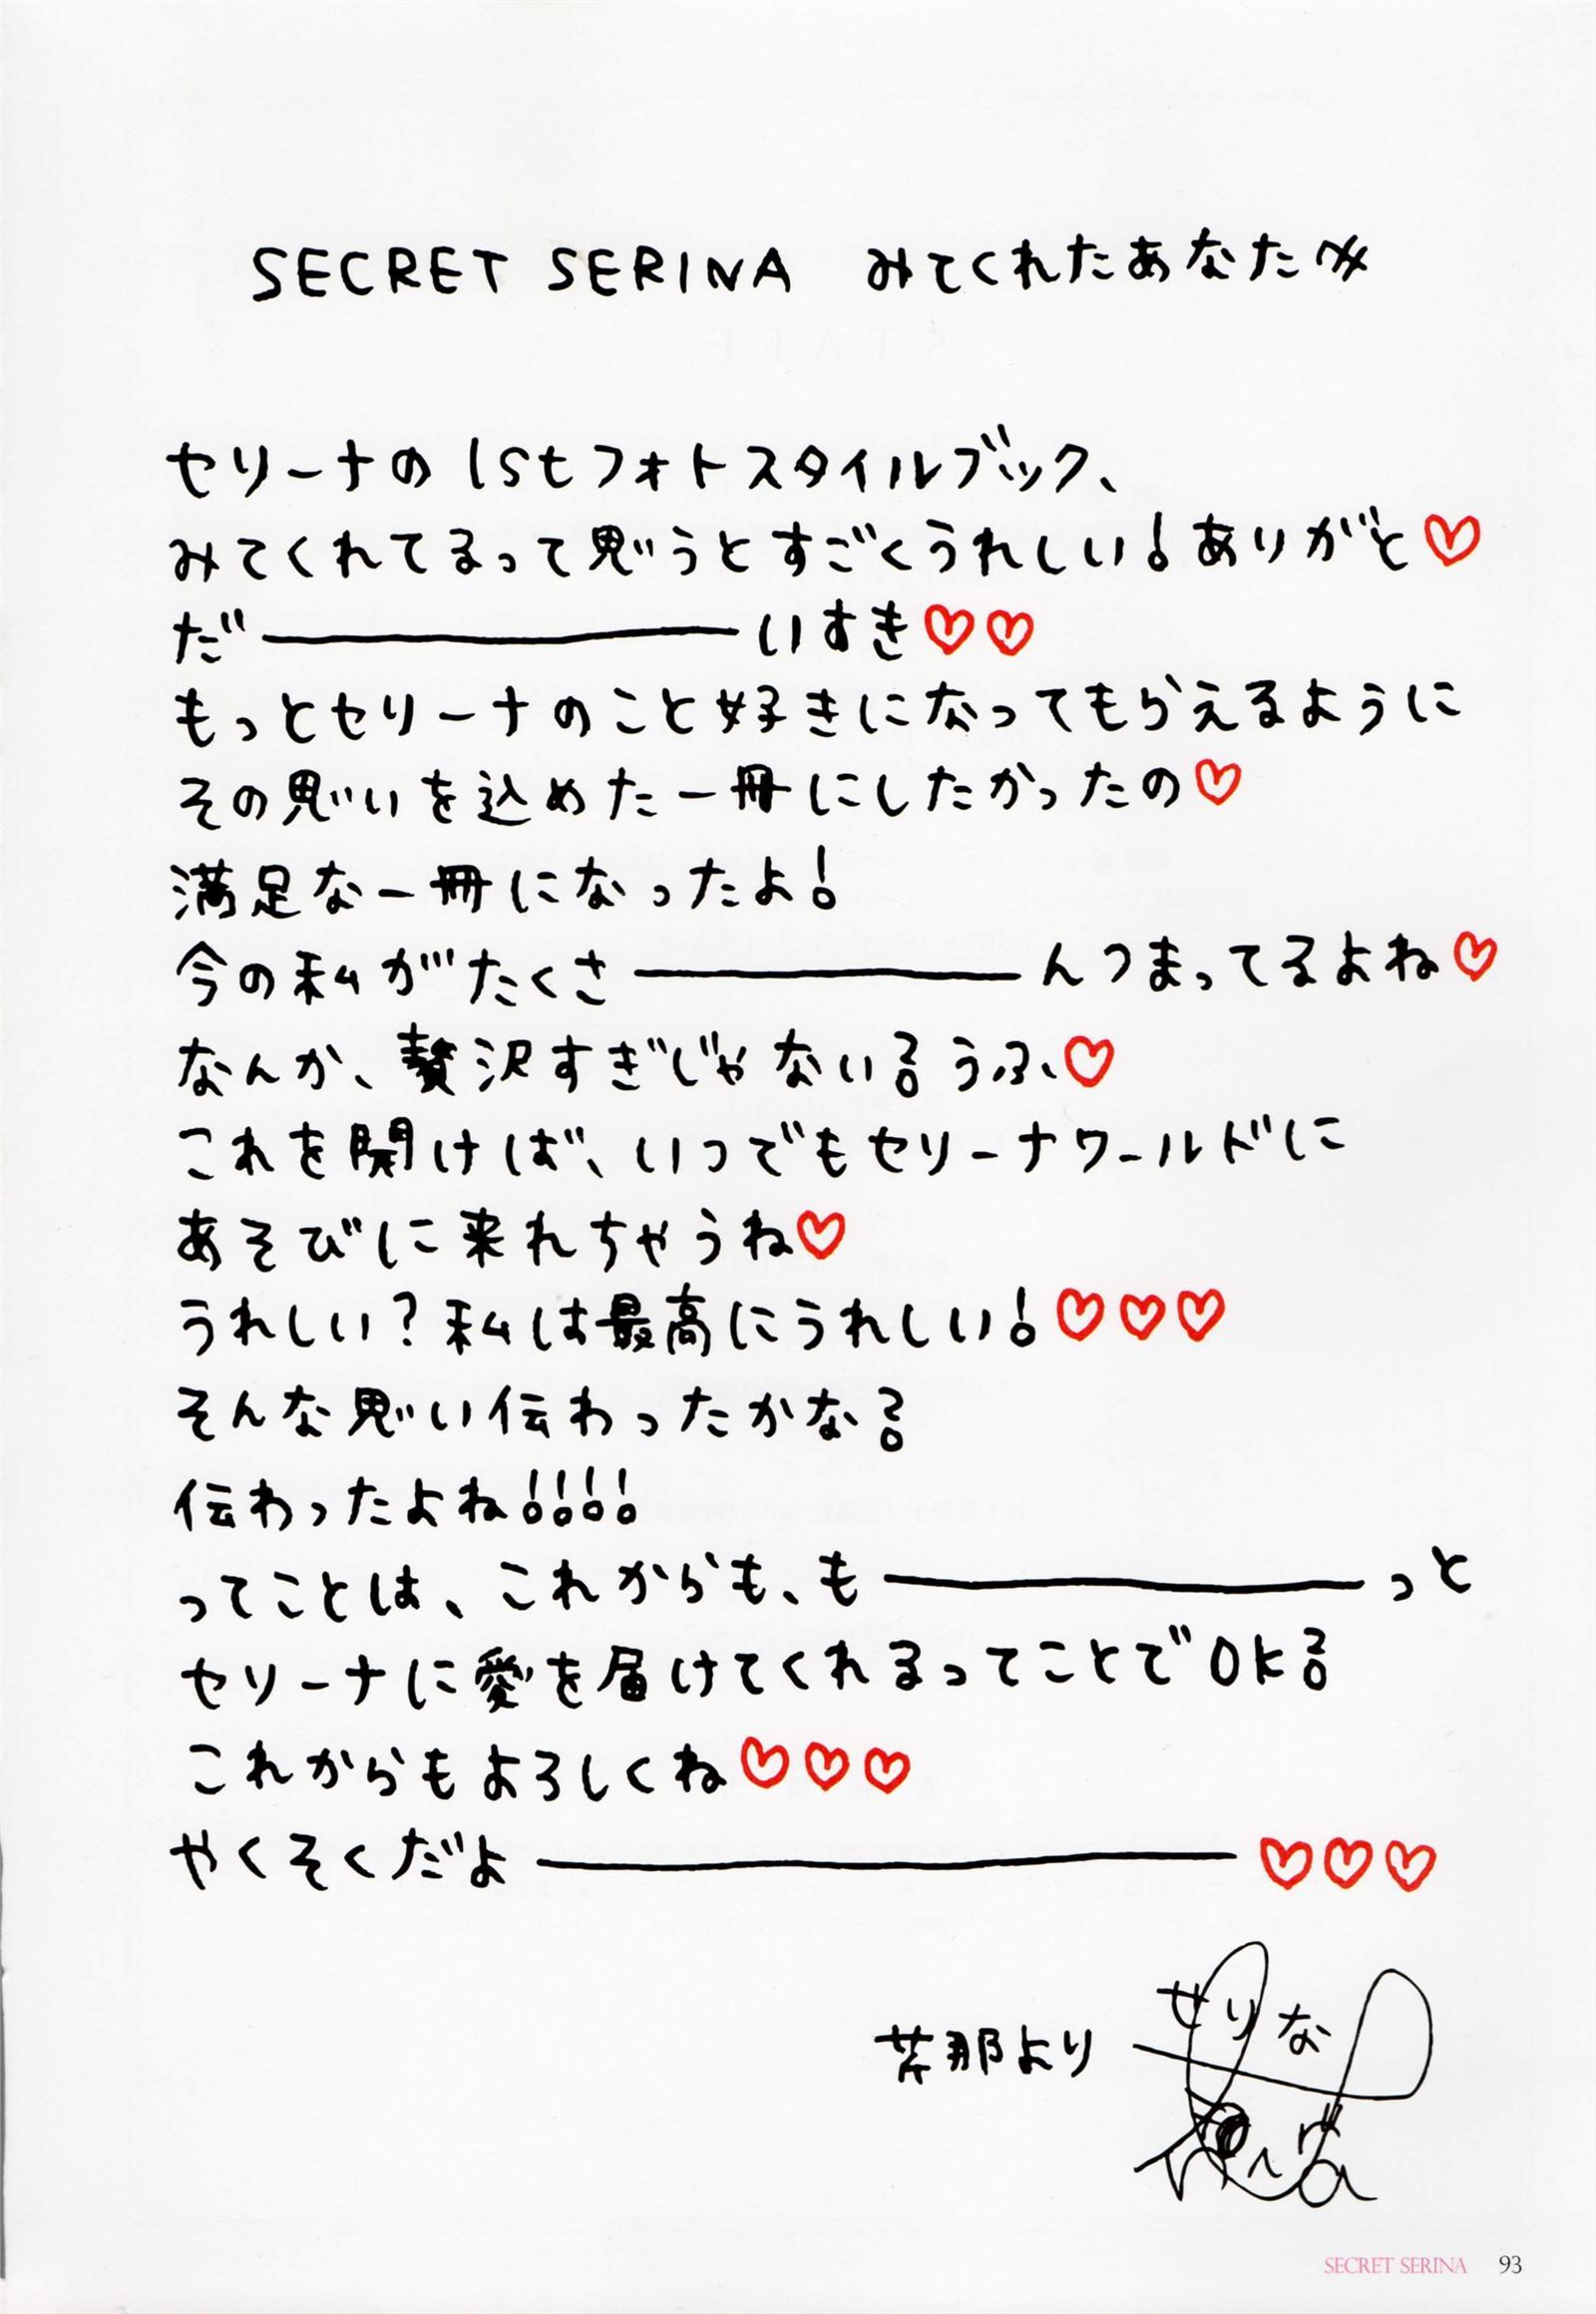 SECRET SERINA みてくれたあなたへ
セリーナの1stフォトスタイルブック、
みてくれてるって思うとすごくうれしい!ありがと♡
だ――――いすき♡♡
もっとセリーナのこと好きになってもらえるように
その思いを込めた一冊にしたかったの♡
満足な一冊になったよ!
今の私がたくさ――――んつまってるよね♡
なんか、贅沢すぎじゃない?うふ♡
これを開けば、いつでもセリーナワールドに
あそびに来れちゃうね♡
うれしい?私は最高にうれしい!♡♡♡
そんな思い伝わったかな?
伝わったよね!!!!
ってことは、これからも、も――――っと
セリーナに愛を届けてくれるってことでOK?
これからもよろしくね♡♡♡
やくそくだよ――――♡♡♡
芹那より
せりな
SECRET SERINA 93